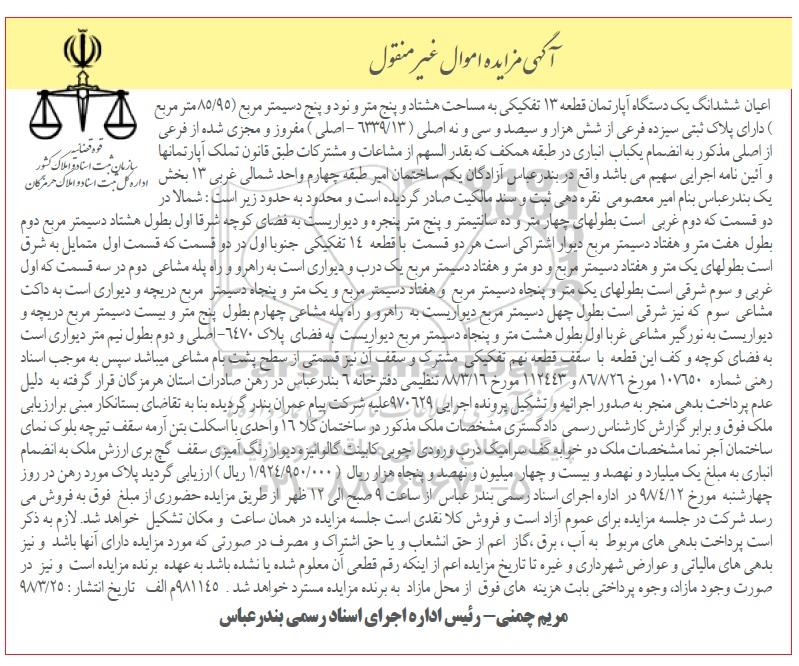 آگهی مزایده اموال غیر منقول
قوه قضائیه
سازمان ثبت اسناد و املاک کشور
اداره کل ثبت اسناد و املاک هرمزگان
اعیان ششدانگ یک دستگاه آپارتمان قطعه ۱۳ تفکیکی به مساحت هشتاد و پنج متر و نود و پنج دسیمتر مربع (۸۵/۹۵ متر مربع
) دارای پلاک ثبتی سیزده فرعی از شش هزار و سیصد و سی و نه اصلی ( ۶۳۳۹/۱۳ - اصلی ) مفروز و مجزی شده از فرعی
از اصلی مذکور به انضمام یکباب انباری در طبقه همکف که بقدر السهم از مشاعات و مشترکات طبق قانون تملک آپارتمانها
و آئین نامه اجرایی سهیم می باشد واقع در بندرعباس آزادگان یکم ساختمان امیر طبقه چهارم واحد شمالی غربی ۱۳ بخش
یک بندرعباس بنام امیر معصومی نقره دهی ثبت و سند مالکیت صادر گردیده است و محدود به حدود زیر است : شمالا در
دو قسمت که دوم غربی است بطولهای چهار متر و ده سانتیمتر و پنج متر پنجره و دیواریست به فضای کوچه شرقا اول بطول هشتاد دسیمتر مربع دوم
بطول هفت متر و هفتاد دسیمتر مربع دیوار اشتراکی است هر دو قسمت با قطعه ۱۴ تفکیکی جنوبا اول در دو قسمت که قسمت اول متمایل به شرق
است بطولهای یک متر و هفتاد دسیمتر مربع و دو متر و هفتاد دسیمتر مربع یک درب و دیواری است به راهرو و راه پله مشاعی دوم در سه قسمت که اول
غربی و سوم شرقی است بطولهای یک متر و پنجاه دسیمتر مربع و هفتاد دسیمتر مربع و یک متر و پنجاه دسیمتر مربع دریچه و دیواری است به داکت
مشاعی سوم که نیز شرقی است بطول چهل دسیمتر مربع دیواریست به راهرو و راه پله مشاعی چهارم بطول پنج متر و بیست دسیمتر مربع دریچه و
دیواریست به نورگیر مشاعی غربا اول بطول هشت متر و پنجاه دسیمتر مربع دیواریست به فضای پلاک ۶۴۷۰- اصلی و دوم بطول نیم متر دیواری است
به فضای کوچه و کف این قطعه با سقف قطعه نهم تفکیکی مشترک و سقف آن نیز قسمتی از سطح پشت بام مشاعی میباشد سپس به موجب اسناد
رهنی شماره ۱۰۷۶۵۰ مورخ ۸۶/۸/۲۶ و ۱۱۲۴۴۳ مورخ ۸۸/۳/۱۶ تنظیمی دفترخانه ۶ بندرعباس در رهن صادرات استان هرمزگان قرار گرفته به دلیل
عدم پرداخت بدهی منجر به صدور اجرائیه و تشکیل پرونده اجرایی ۹۷۰۶۲۹ علیه شرکت پیام عمران بندر گردیده بنا به تقاضای بستانکار مبنی برارزیابی
ملک فوق و برابر گزارش کارشناس رسمی دادگستری مشخصات ملک مذکور در ساختمان کلا ۱۶ واحدی با اسکلت بتن آرمه سقف تیرچه بلوک نمای
ساختمان آجر نما مشخصات ملک دو خوابه کف سرامیک درب ورودی چوبی کابینت گالوانیزه دیوار رنگ آمیزی سقف گچ بری ارزش ملک به انضمام
انباری به مبلغ یک میلیارد و نهصد و بیست و چهار میلیون و نهصد و پنجاه هزار ریال ( ۱/۹۲۴/۹۵۰/۰۰۰ ریال ) ارزیابی گردید پلاک مورد رهن در روز
چهارشنبه مورخ ۹۸/۴/۱۲ در اداره اجرای اسناد رسمی بندر عباس از ساعت ۹ صبح الی ۱۲ ظهر از طریق مزایده حضوری از مبلغ فوق به فروش می
رسد شرکت در جلسه مزایده برای عموم آزاد است و فروش کلا نقدی است جلسه مزایده در همان ساعت و مکان تشکیل خواهد شد. لازم به ذکر
است پرداخت بدهی های مربوط به آب ، برق ،گاز اعم از حق انشعاب و یا حق اشتراک و مصرف در صورتی که مورد مزایده دارای آنها باشد و نیز
بدهی های مالیاتی و عوارض شهرداری و غیره تا تاریخ مزایده اعم از اینکه رقم قطعی آن معلوم شده یا نشده باشد به عهده برنده مزایده است و نیز در
صورت وجود مازاد، وجوه پرداختی بابت هزینه های فوق از محل مازاد به برنده مزایده مسترد خواهد شد . ۹۸۱۱۴۵م الف تاریخ انتشار : ۹۸/۳/۲۵
مریم چمنی- رئیس اداره اجرای اسناد رسمی بندرعباس
ParsNamadData
۰۲۱-۸۸۳۴۹۶۷۰-۵